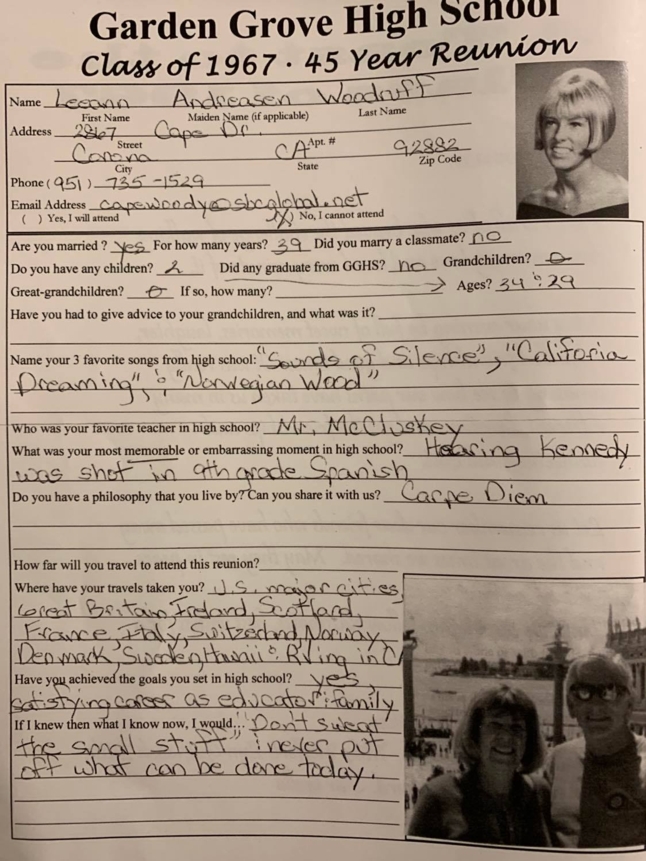 Garden Grove High School
Class of 1967 · 45 Year Reunion
Name Leeann Andreasen Woodruff
First Name Maiden Name (if applicable) Last Name
Address 2867 Cape Dr.
Street Apt. #
Corona CA 92882
City State Zip Code
Phone (951) 735-1529
Email Address capewoody@sbcglobal.net
( ) Yes, I will attend (X) No, I cannot attend
Are you married? yes For how many years? 39 Did you marry a classmate? no
Do you have any children? 2 Did any graduate from GGHS? no Grandchildren? 0
Great-grandchildren? 0 If so, how many? → Ages? 34 & 29
Have you had to give advice to your grandchildren, and what was it?
Name your 3 favorite songs from high school: "Sounds of Silence", "Califoria
Dreaming", & "Norwegian Wood"
Who was your favorite teacher in high school? Mr. McCluskey
What was your most memorable or embarrassing moment in high school? Hearing Kennedy
was shot in 9th grade Spanish
Do you have a philosophy that you live by? Can you share it with us? Carpe Diem
How far will you travel to attend this reunion?
Where have your travels taken you? U.S. major cities,
Great Britain, Ireland, Scotland,
France, Italy, Switzerland, Norway,
Denmark, Sweden, Hawii & RVing in CA
Have you achieved the goals you set in high school? yes,
satisfying career as educator & family
If I knew then what I know now, I would... "Don't sweat
the small stuff" & never put
off what can be done today.